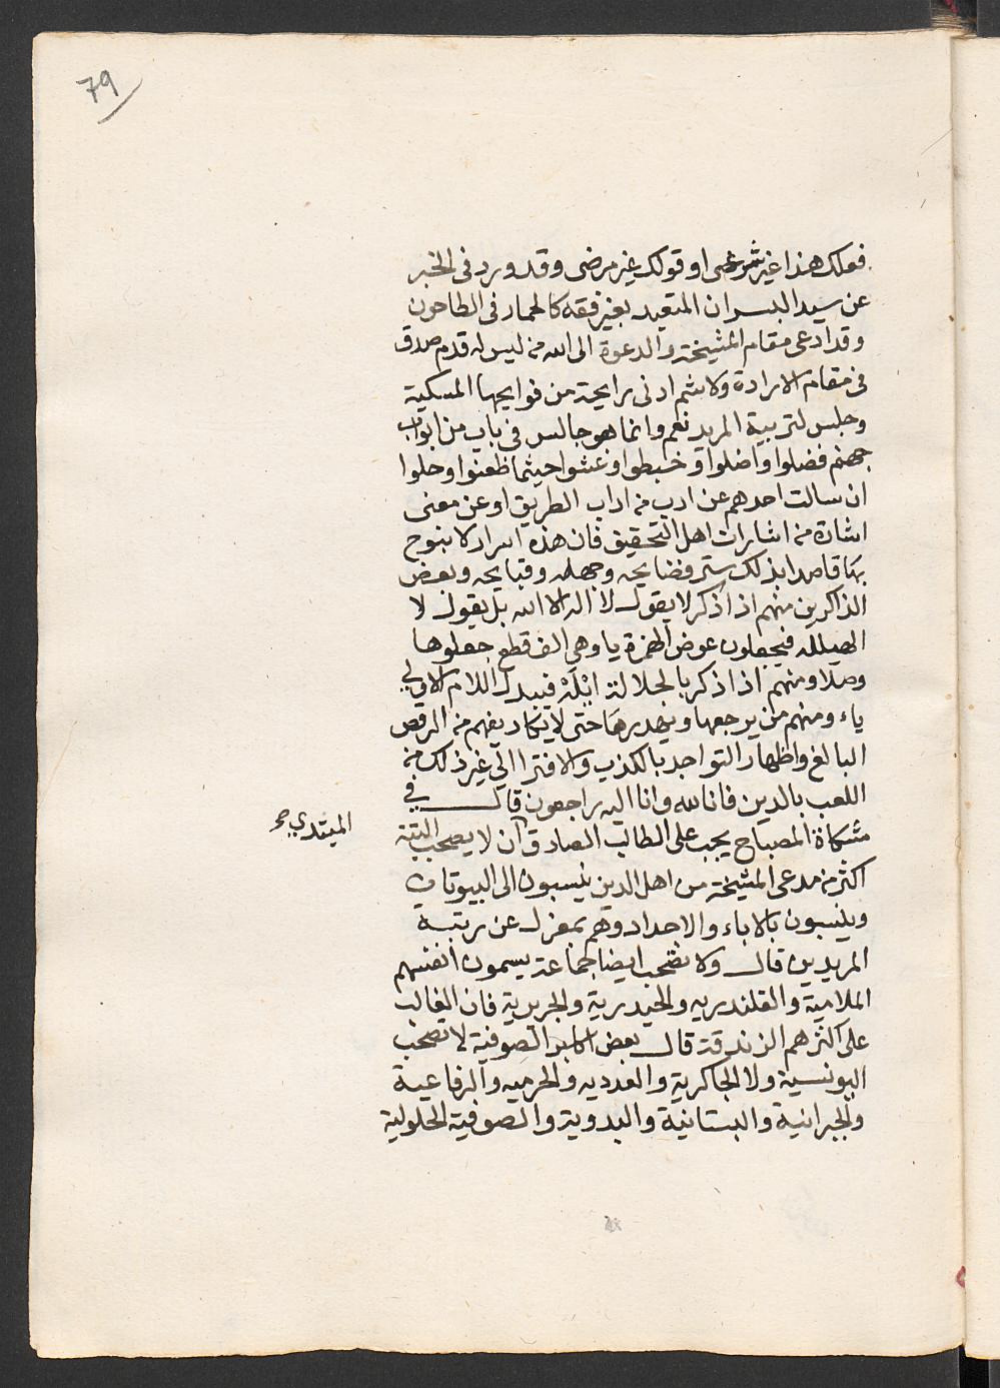 79
فعلك هذا غير شرعى او قولك غير مرضى وقد ورد فى الخبر
عن سيد البشر ان المتعبد بغير فقه كالحمار فى الطاحون
وقد ادعى مقام المشيخة والدعوة الى الله من ليس له قدم صدق
فى مقام الارادة ولا شم ادنى رايحة من فوايحها المسكية
وجلس لتربية المريد نعم وانما هو جالس فى باب من ابواب
جهنم فضلوا واضلوا وخبطوا وعشوا حيثما ظعنوا وحلوا
ان سالت احدهم عن ادب من اداب الطريق او عن معنى
اشارة من اشارات اهل التحقيق فان هذه اسرار لا ينوح
بها قاصدا بذلك ستر فضايحه وجهله وقبايحه وبعض
الذاكرين منهم اذا ذكر لا يقول لا اله الا الله بل يقول لا
فيجعلون عوض الهمزة يا وهى الف قطع جعلوها
وصلا ومنهم اذا ذكر بالجلالة ايْلَهْ فيبدل اللام الاولى
ياء ومنهم من يرجعها ويهدرها حتى لا يكاد يفهم من الرقص
البالغ واظهار التواجد بالكذب والافترا الى غير ذلك من
اللعب بالدين فانا لله وانا اليه راجعون قال فى
مشكاة المصباح يجب على الطالب الصادق ان لا يصحب البتة
المبتدي صح
اكثر من مدعى المشيخة من اهل الدين ينسبون الى البيوتات
وينسبون بالاباء والاجداد وهم بمعزل عن رتبة
المريدين قال ولا يصحب ايضا لجماعة يسمون انفسهم
الملامية والقلندريه والحيدرية والجريرية فان الغالب
على اكثرهم الزندقة قال بعض اكابر الصوفية لا تصحب
اليونسية ولا الجاكرية والعدديه والحرميه والرفاعية
والجبرانية والبستانية والبدوية والصوفية الحلولية